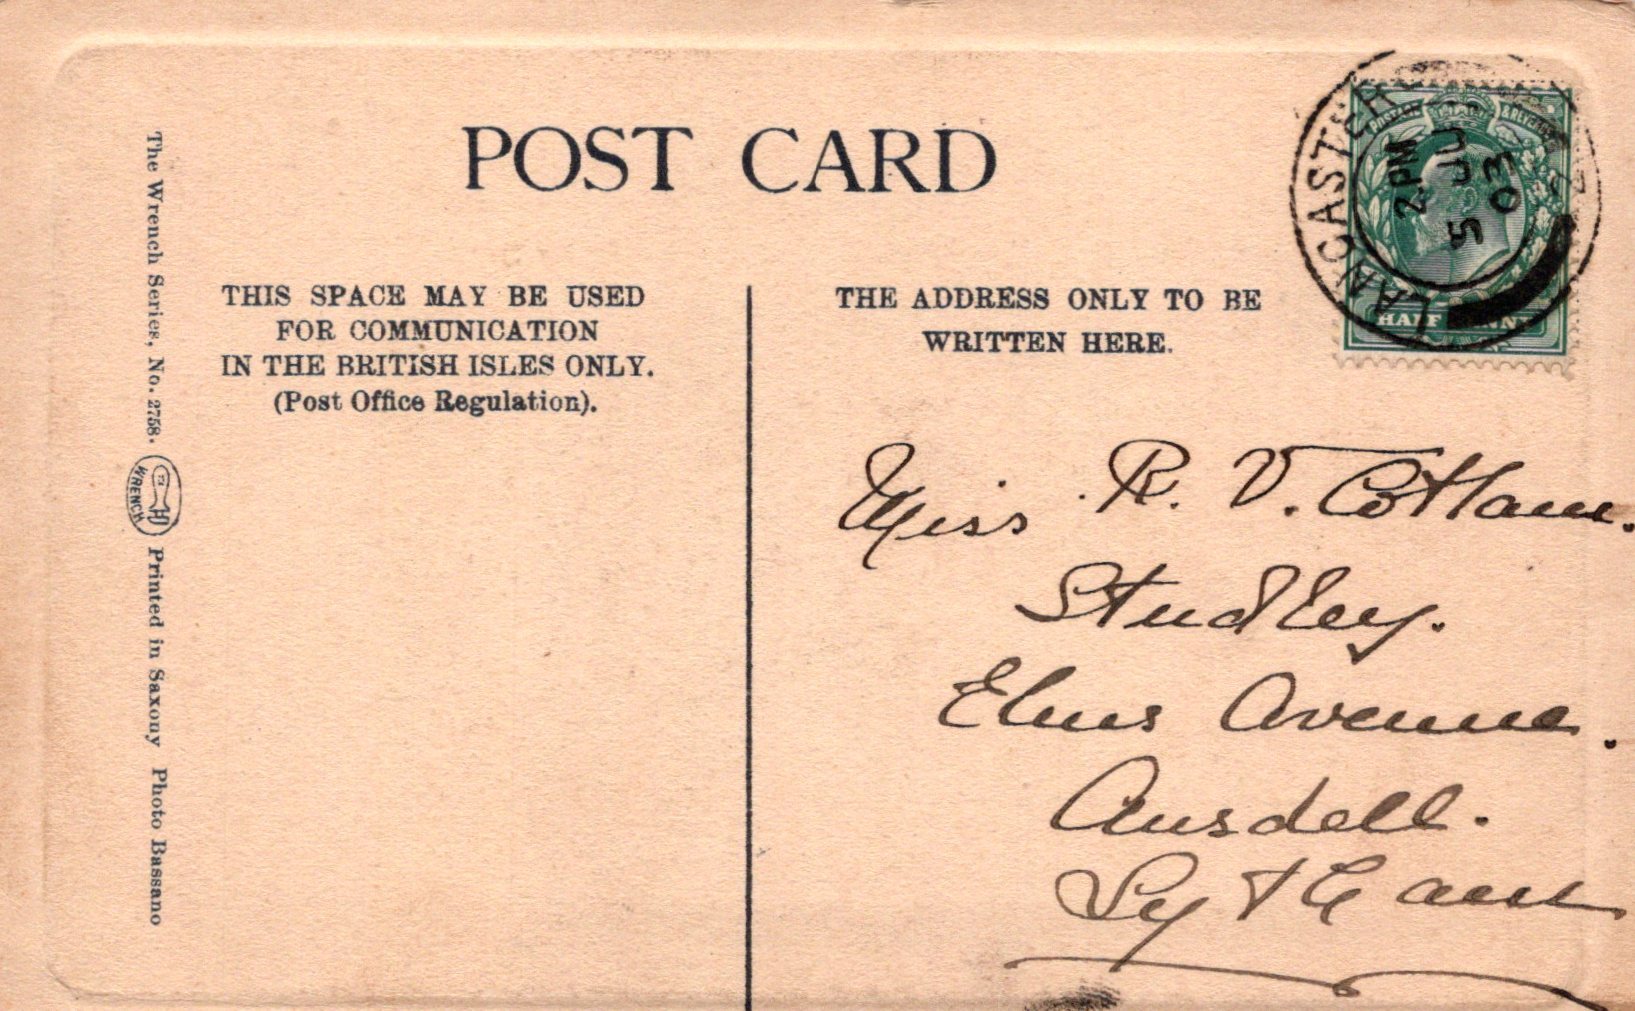 POST CARD
THIS SPACE MAY BE USED
FOR COMMUNICATION
IN THE BRITISH ISLES ONLY.
(Post Office Regulation).
THE ADDRESS ONLY TO BE
WRITTEN HERE.
The Wrench Series, No. 2758.
WRENCH
Printed in Saxony Photo Bassano
POSTAGE & REVENUE
HALF PENNY
LANCASTER
2.PM
5 JU
03
Miss R. V. Cottam.
Studley.
Elms Avenue.
Ansdell.
Lytham